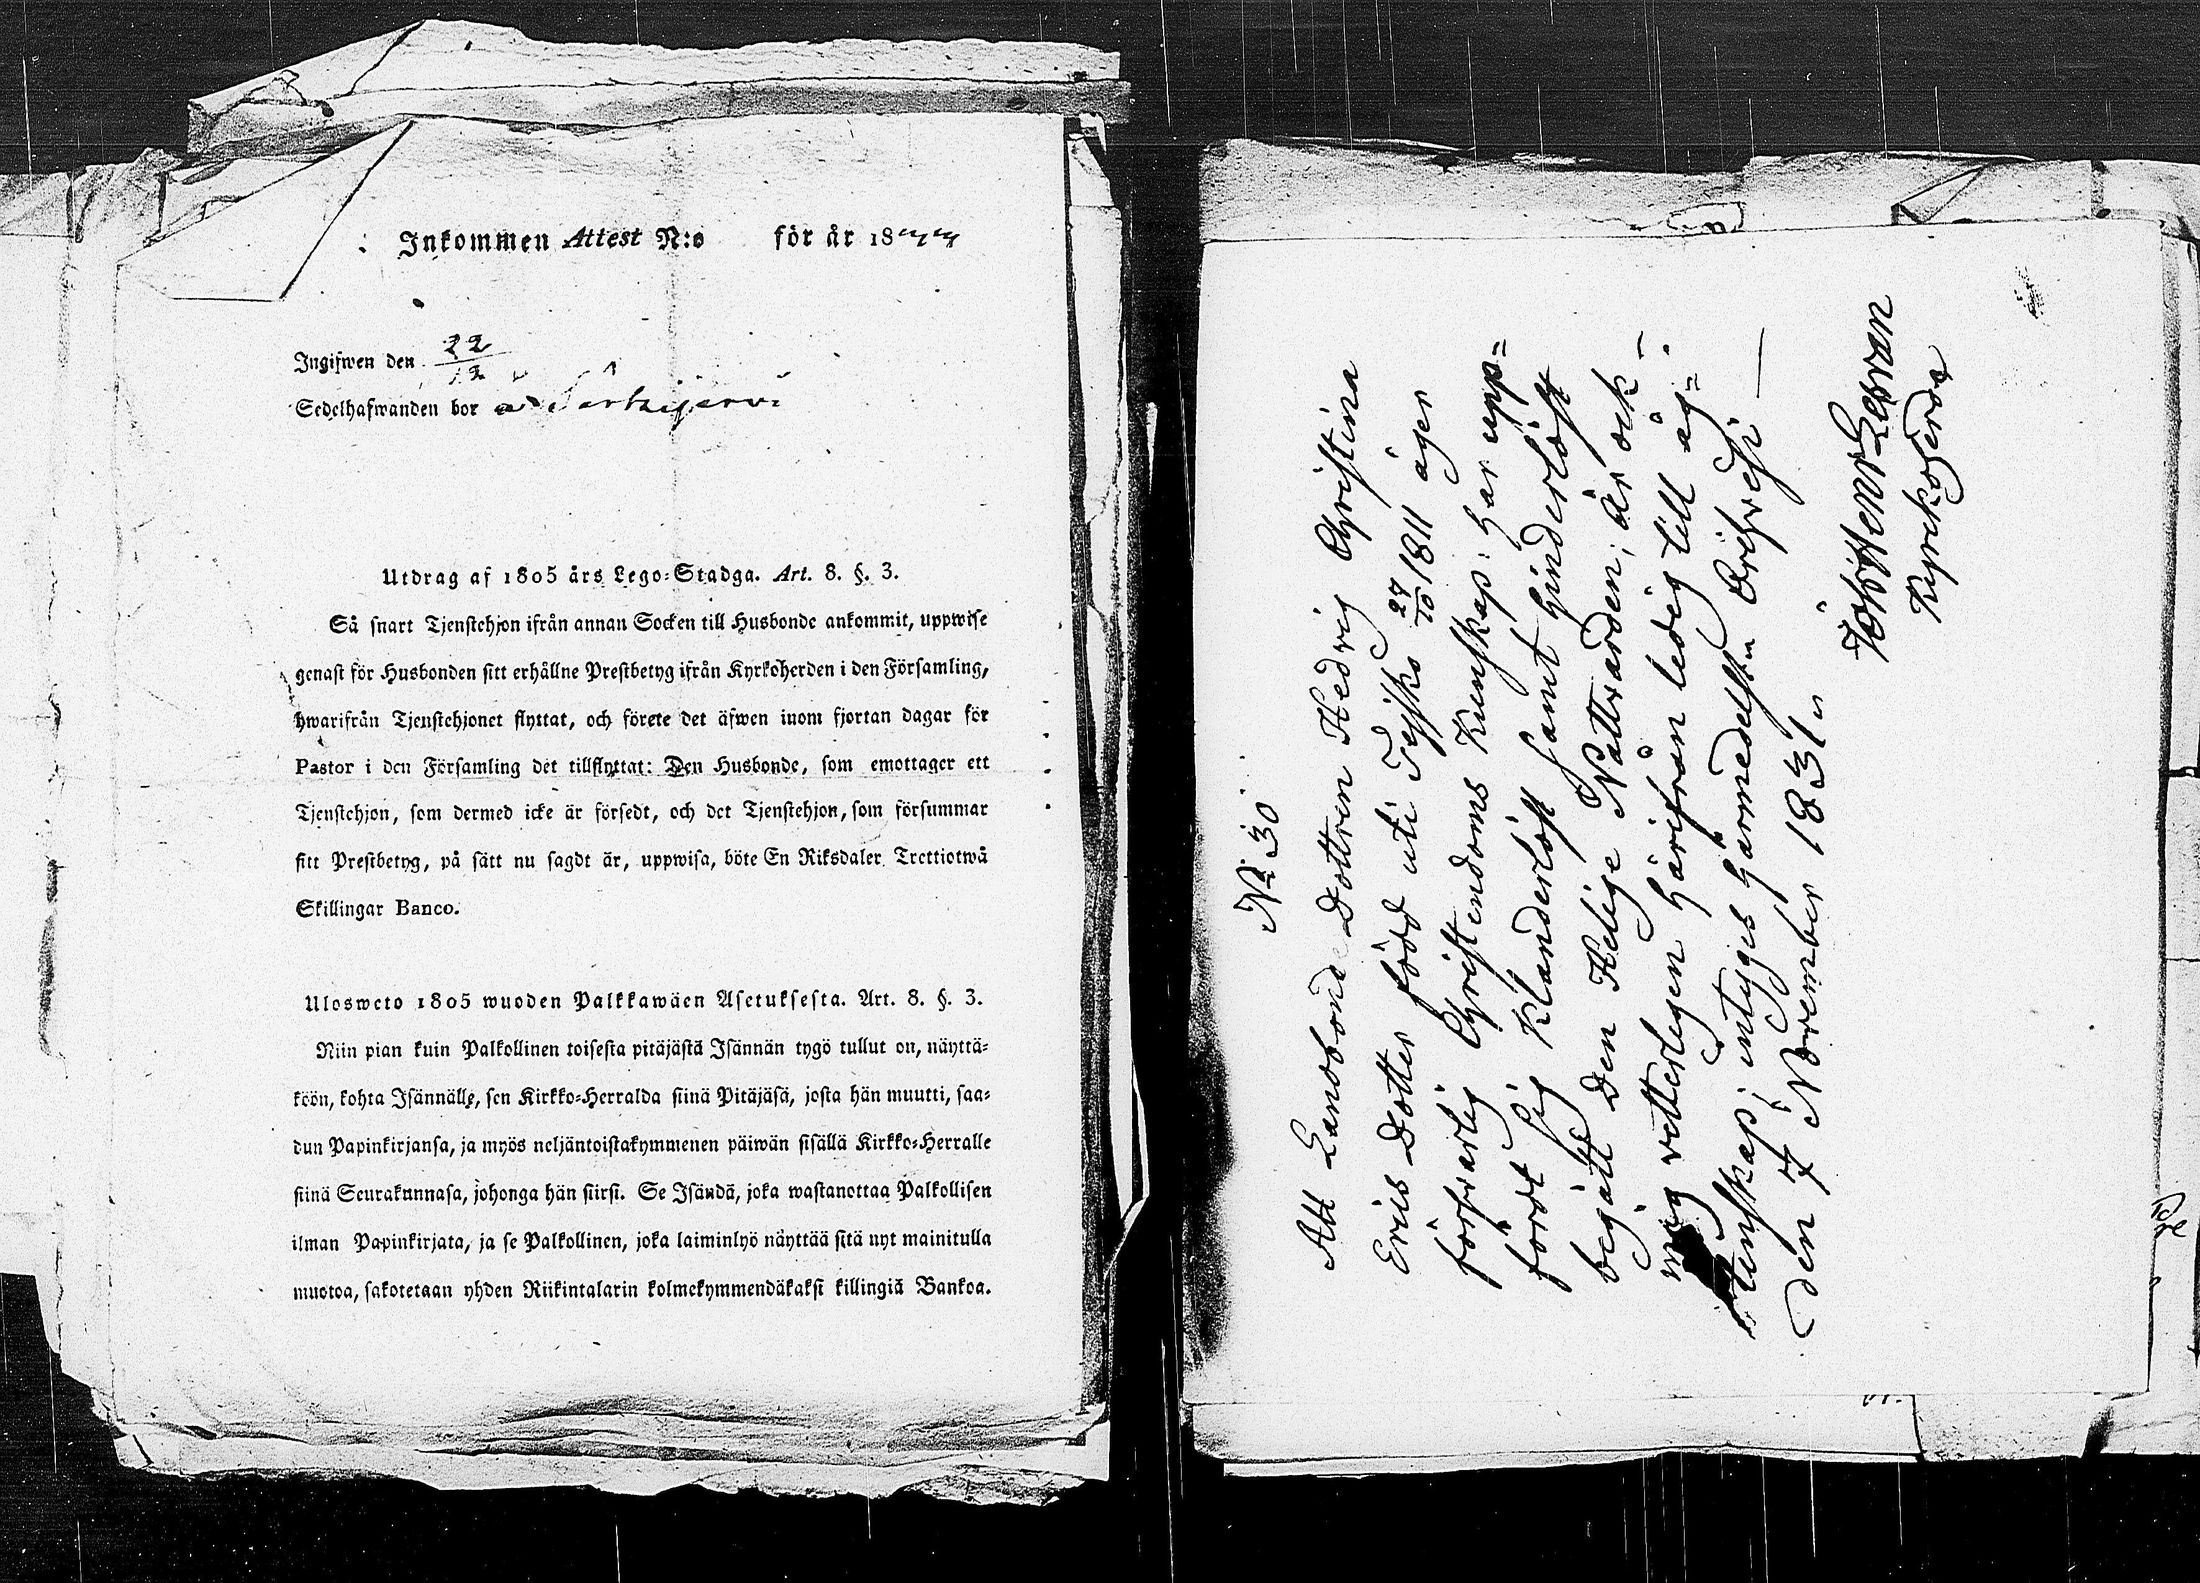 Inkommen Attest N:o för år 18
Ingifwen den 22/12
Sedelhafwanden bor å Särkijerwi
Utdrag af 1805 års Lego-Stadga. Art. 8. §. 3.
Så snart Tjenstehjon ifrån annan Socken till Husbonde ankommit, uppwise
genast för Husbonden sitt erhållne Prestbetyg ifrån Kyrkoherden i den Församling,
hwarifrån Tjenstehjonet flyttat, och förete det äfwen inom fjortan dagar för
Pastor i den Församling det tillflyttat: Den Husbonde, som emottager ett
Tjenstehjon, som dermed icke är försedt, och det Tjenstehjon, som försummar
sitt Prestbetyg, på sätt nu sagdt är, uppwisa, böte En Riksdaler Trettiotwå
Skillingar Banco.
Ulosweto 1805 wuoden Palkkawäen Asetuksesta. Art. 8. §. 3.
Niin pian kuin Palkollinen toisesta pitäjästä Isännän tygö tullut on, näyttä-
köön, kohta Isännälle, sen Kirkko-Herralda siinä Pitäjäsä, josta hän muutti, saa-
dun Papinkirjansa, ja myös neljäntoistakymmenen päiwän sisällä Kirkko-Herralle
siinä Seurakunnasa, johonga hän siirsi. Se Isändä, joka wastanottaa Palkollisen
ilman Papinkirjata, ja se Palkollinen, joka laiminlyö näyttää sitä nyt mainitulla
muotoa, sakotetaan yhden Riikintalarin kolmekymmendäkaksi killingiä Bankoa.
No 30
Att Landbonde Dottren Hedvig Christina
Erics Dotter född uti Tejsko 27/10 1811 äger
försvarlig Christendoms Kunskap: har upp=
fördt sig klanderlöst samt hinderlöst
begått Den Helige Nattvarden; är ock
vetterlegen härifrån ledig till äg=
tenskap; intyges härmedelst
den 7 November 1831
Kyrckoherde